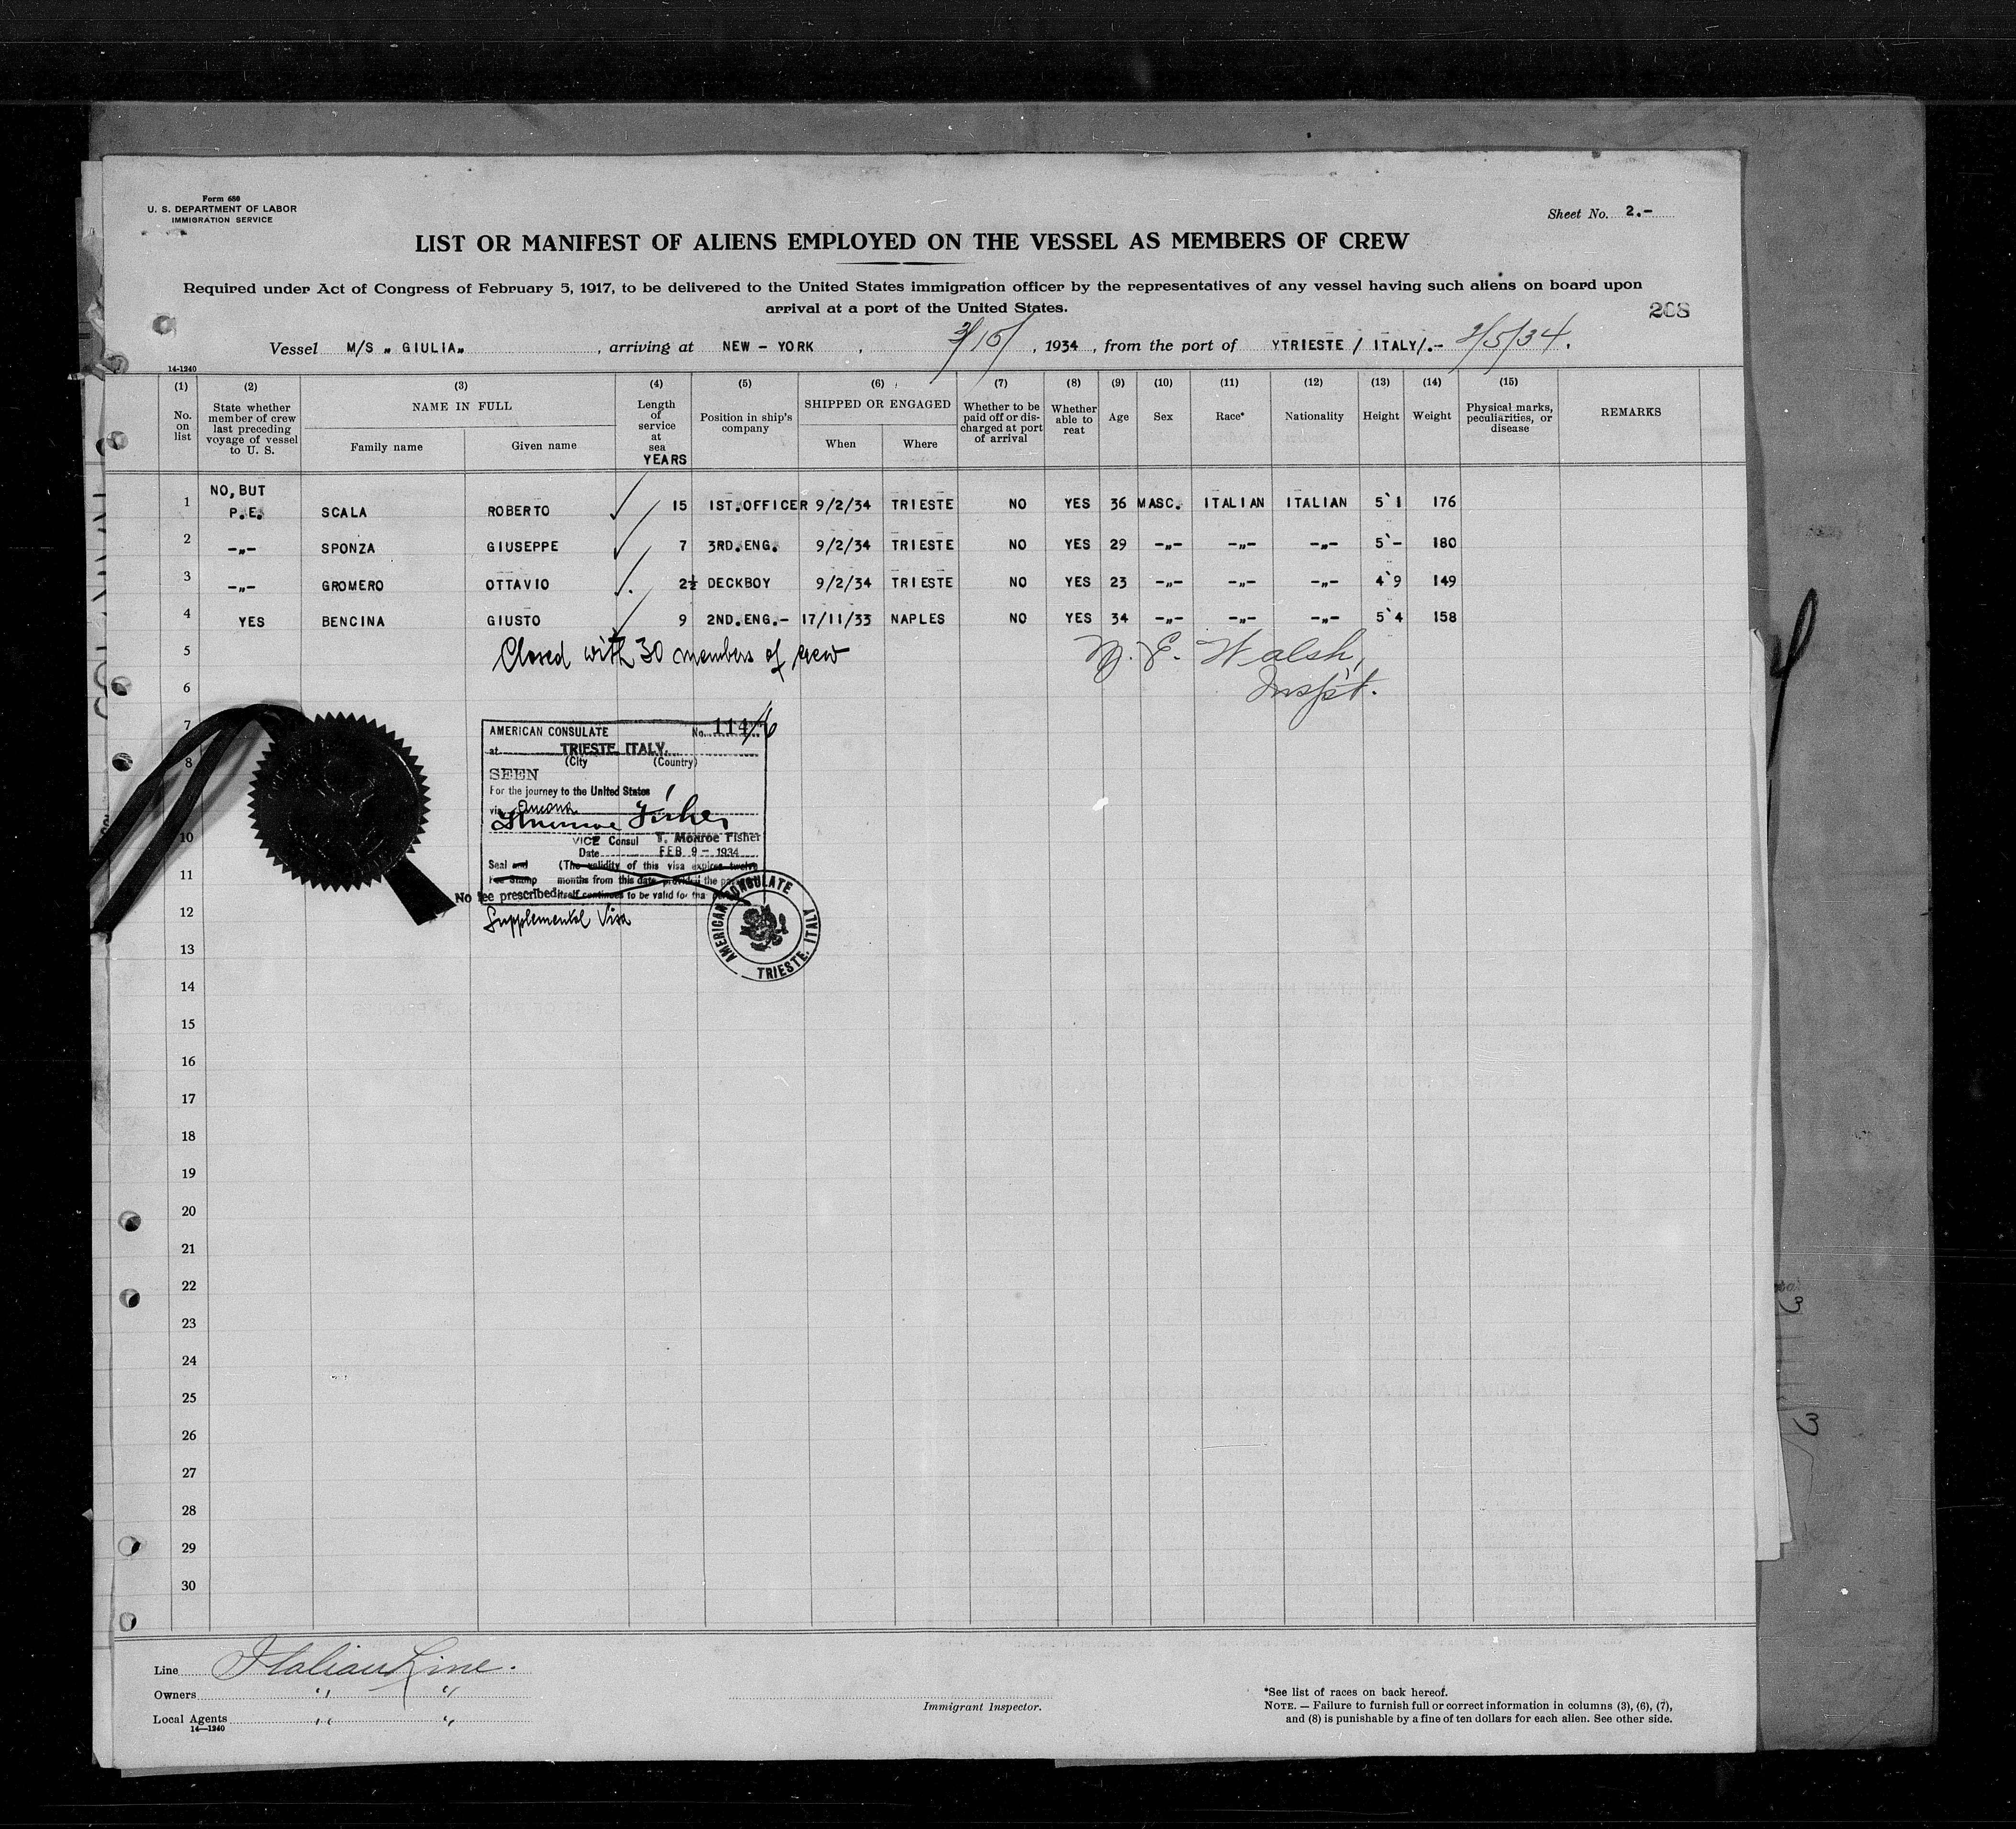 Form 680
U. S. DEPARTMENT OF LABOR
IMMIGRATION SERVICE
Sheet No. 2.-
LIST OR MANIFEST OF ALIENS EMPLOYED ON THE VESSEL AS MEMBERS OF CREW
Required under Act of Congress of February 5, 1917, to be delivered to the United States immigration officer by the representatives of any vessel having such aliens on board upon
arrival at a port of the United States.
208
Vessel M/S „ GIULIA„ , arriving at NEW - YORK , 3/10/ , 1934 , from the port of YTRIESTE / ITALY/.- 2/5/34.
14-1240
(1) (2) (3) (4) (5) (6) (7) (8) (9) (10) (11) (12) (13) (14) (15)
No. on list
State whether member of crew last preceding voyage of vessel to U. S.
NAME IN FULL
Family name
Given name
Length of service at sea
YEARS
Position in ship's company
SHIPPED OR ENGAGED
When
Where
Whether to be paid off or discharged at port of arrival
Whether able to reat
Age
Sex
Race*
Nationality
Height
Weight
Physical marks, peculiarities, or disease
REMARKS
1 NO, BUT P.E. SCALA ROBERTO 15 1ST.OFFICER 9/2/34 TRIESTE NO YES 36 MASC. ITALIAN ITALIAN 5`1 176
2 -„- SPONZA GIUSEPPE 7 3RD.ENG. 9/2/34 TRIESTE NO YES 29 -„- -„- -„- 5`- 180
3 -„- GROMERO OTTAVIO 2½ DECKBOY 9/2/34 TRIESTE NO YES 23 -„- -„- -„- 4`9 149
4 YES BENCINA GIUSTO 9 2ND.ENG.- 17/11/33 NAPLES NO YES 34 -„- -„- -„- 5`4 158
5 Closed with 30 members of crew
E. Walsh,
6 Insp't.
7
AMERICAN CONSULATE No. 114/6
at TRIESTE, ITALY.
8 (City (Country)
SEEN
For the journey to the United States
via Ancona
T. Monroe Fisher
10
VICE Consul T. Monroe Fisher
Date FEB 9 - 1934
Seal and (The validity of this visa expires twelve
11
Fee Stamp months from this date provided the
No fee prescribed. itself continues to be valid for tha
12
Supplemental Visa
AMERICAN CONSULATE
TRIESTE, ITALY
13
14
15
16
17
18
19
20
21
22
23
24
25
26
27
28
29
30
Line Italian Line.
Owners " "
Local Agents " "
14—1240
Immigrant Inspector.
*See list of races on back hereof.
NOTE. — Failure to furnish full or correct information in columns (3), (6), (7),
and (8) is punishable by a fine of ten dollars for each alien. See other side.
3
3